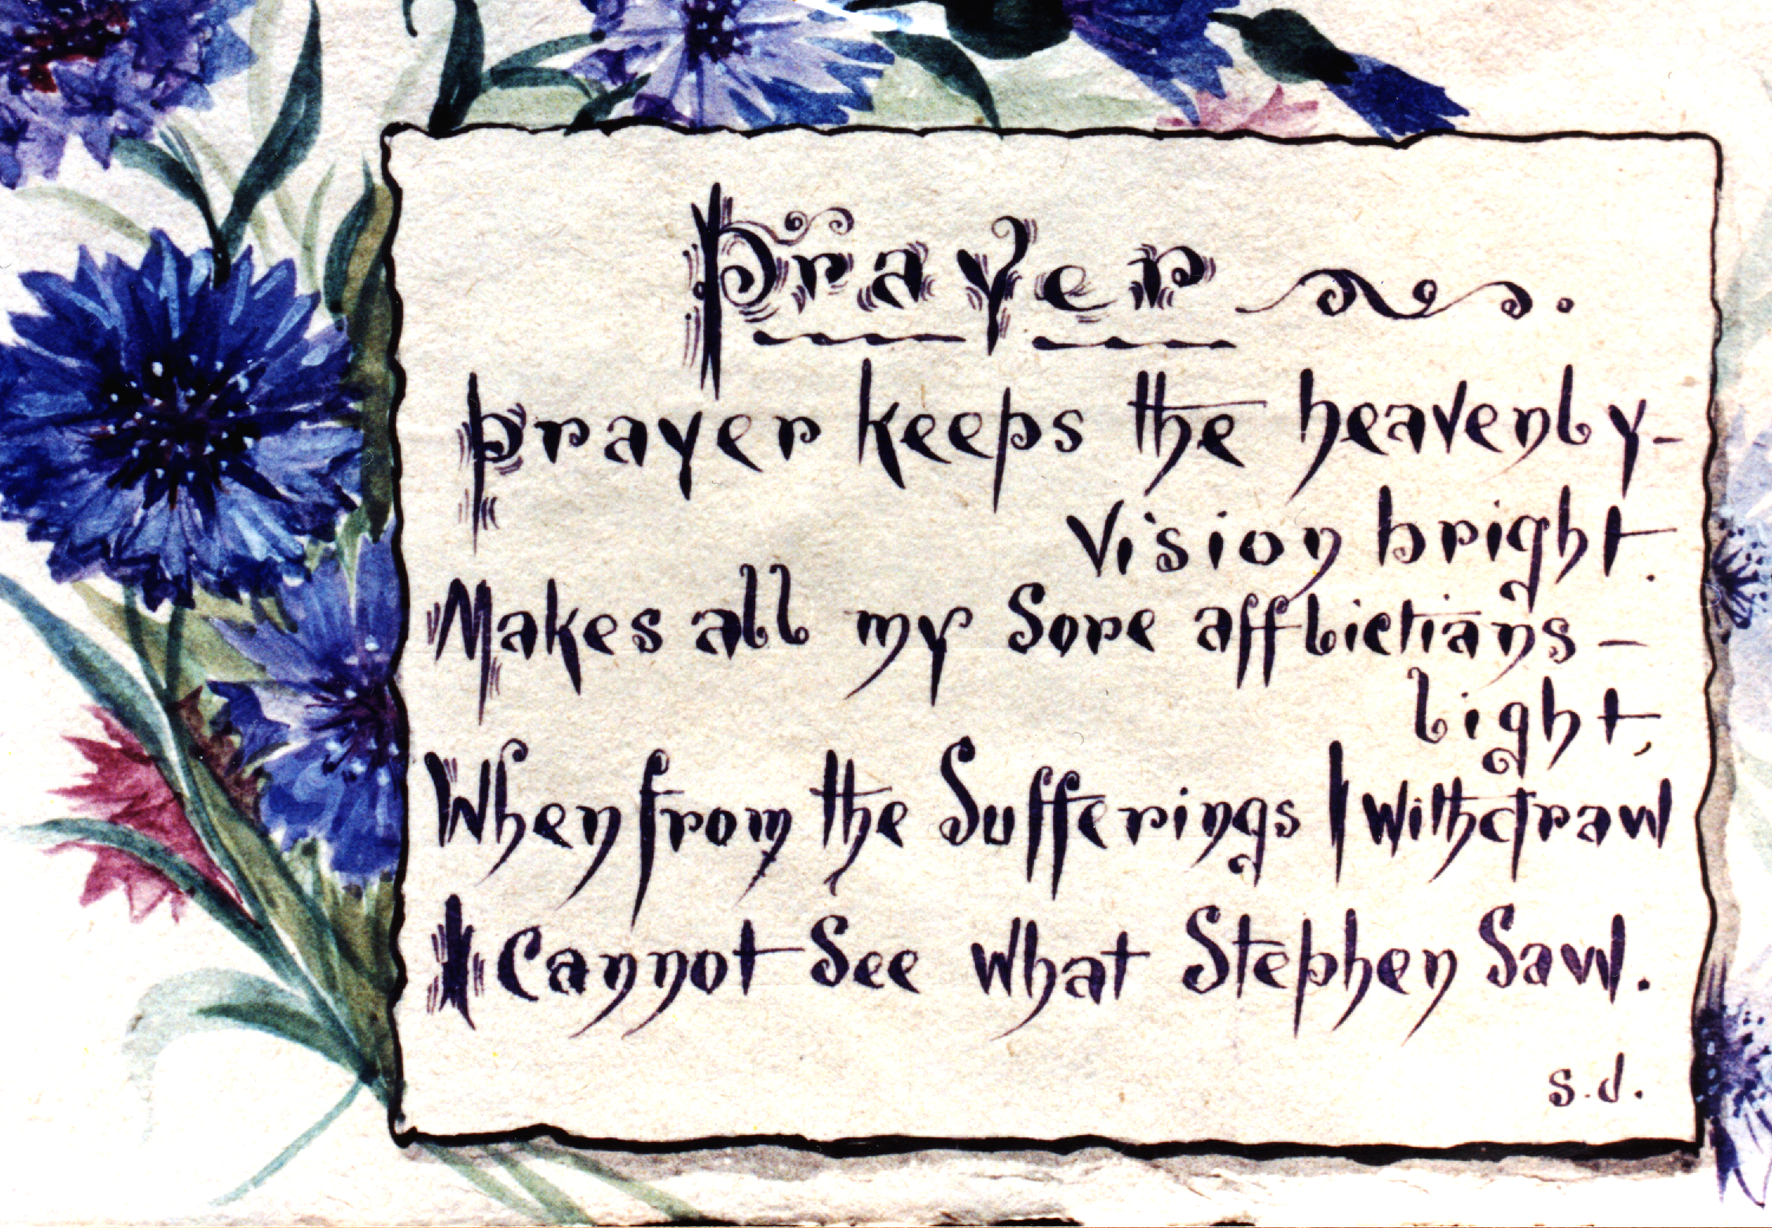 Prayer.
Prayer keeps the heavenly-
Vision bright.
Makes all my Sore afflictians -
light,
When from the Sufferings I Withdraw
I Cannot See what Stephen Saw.
s.d.